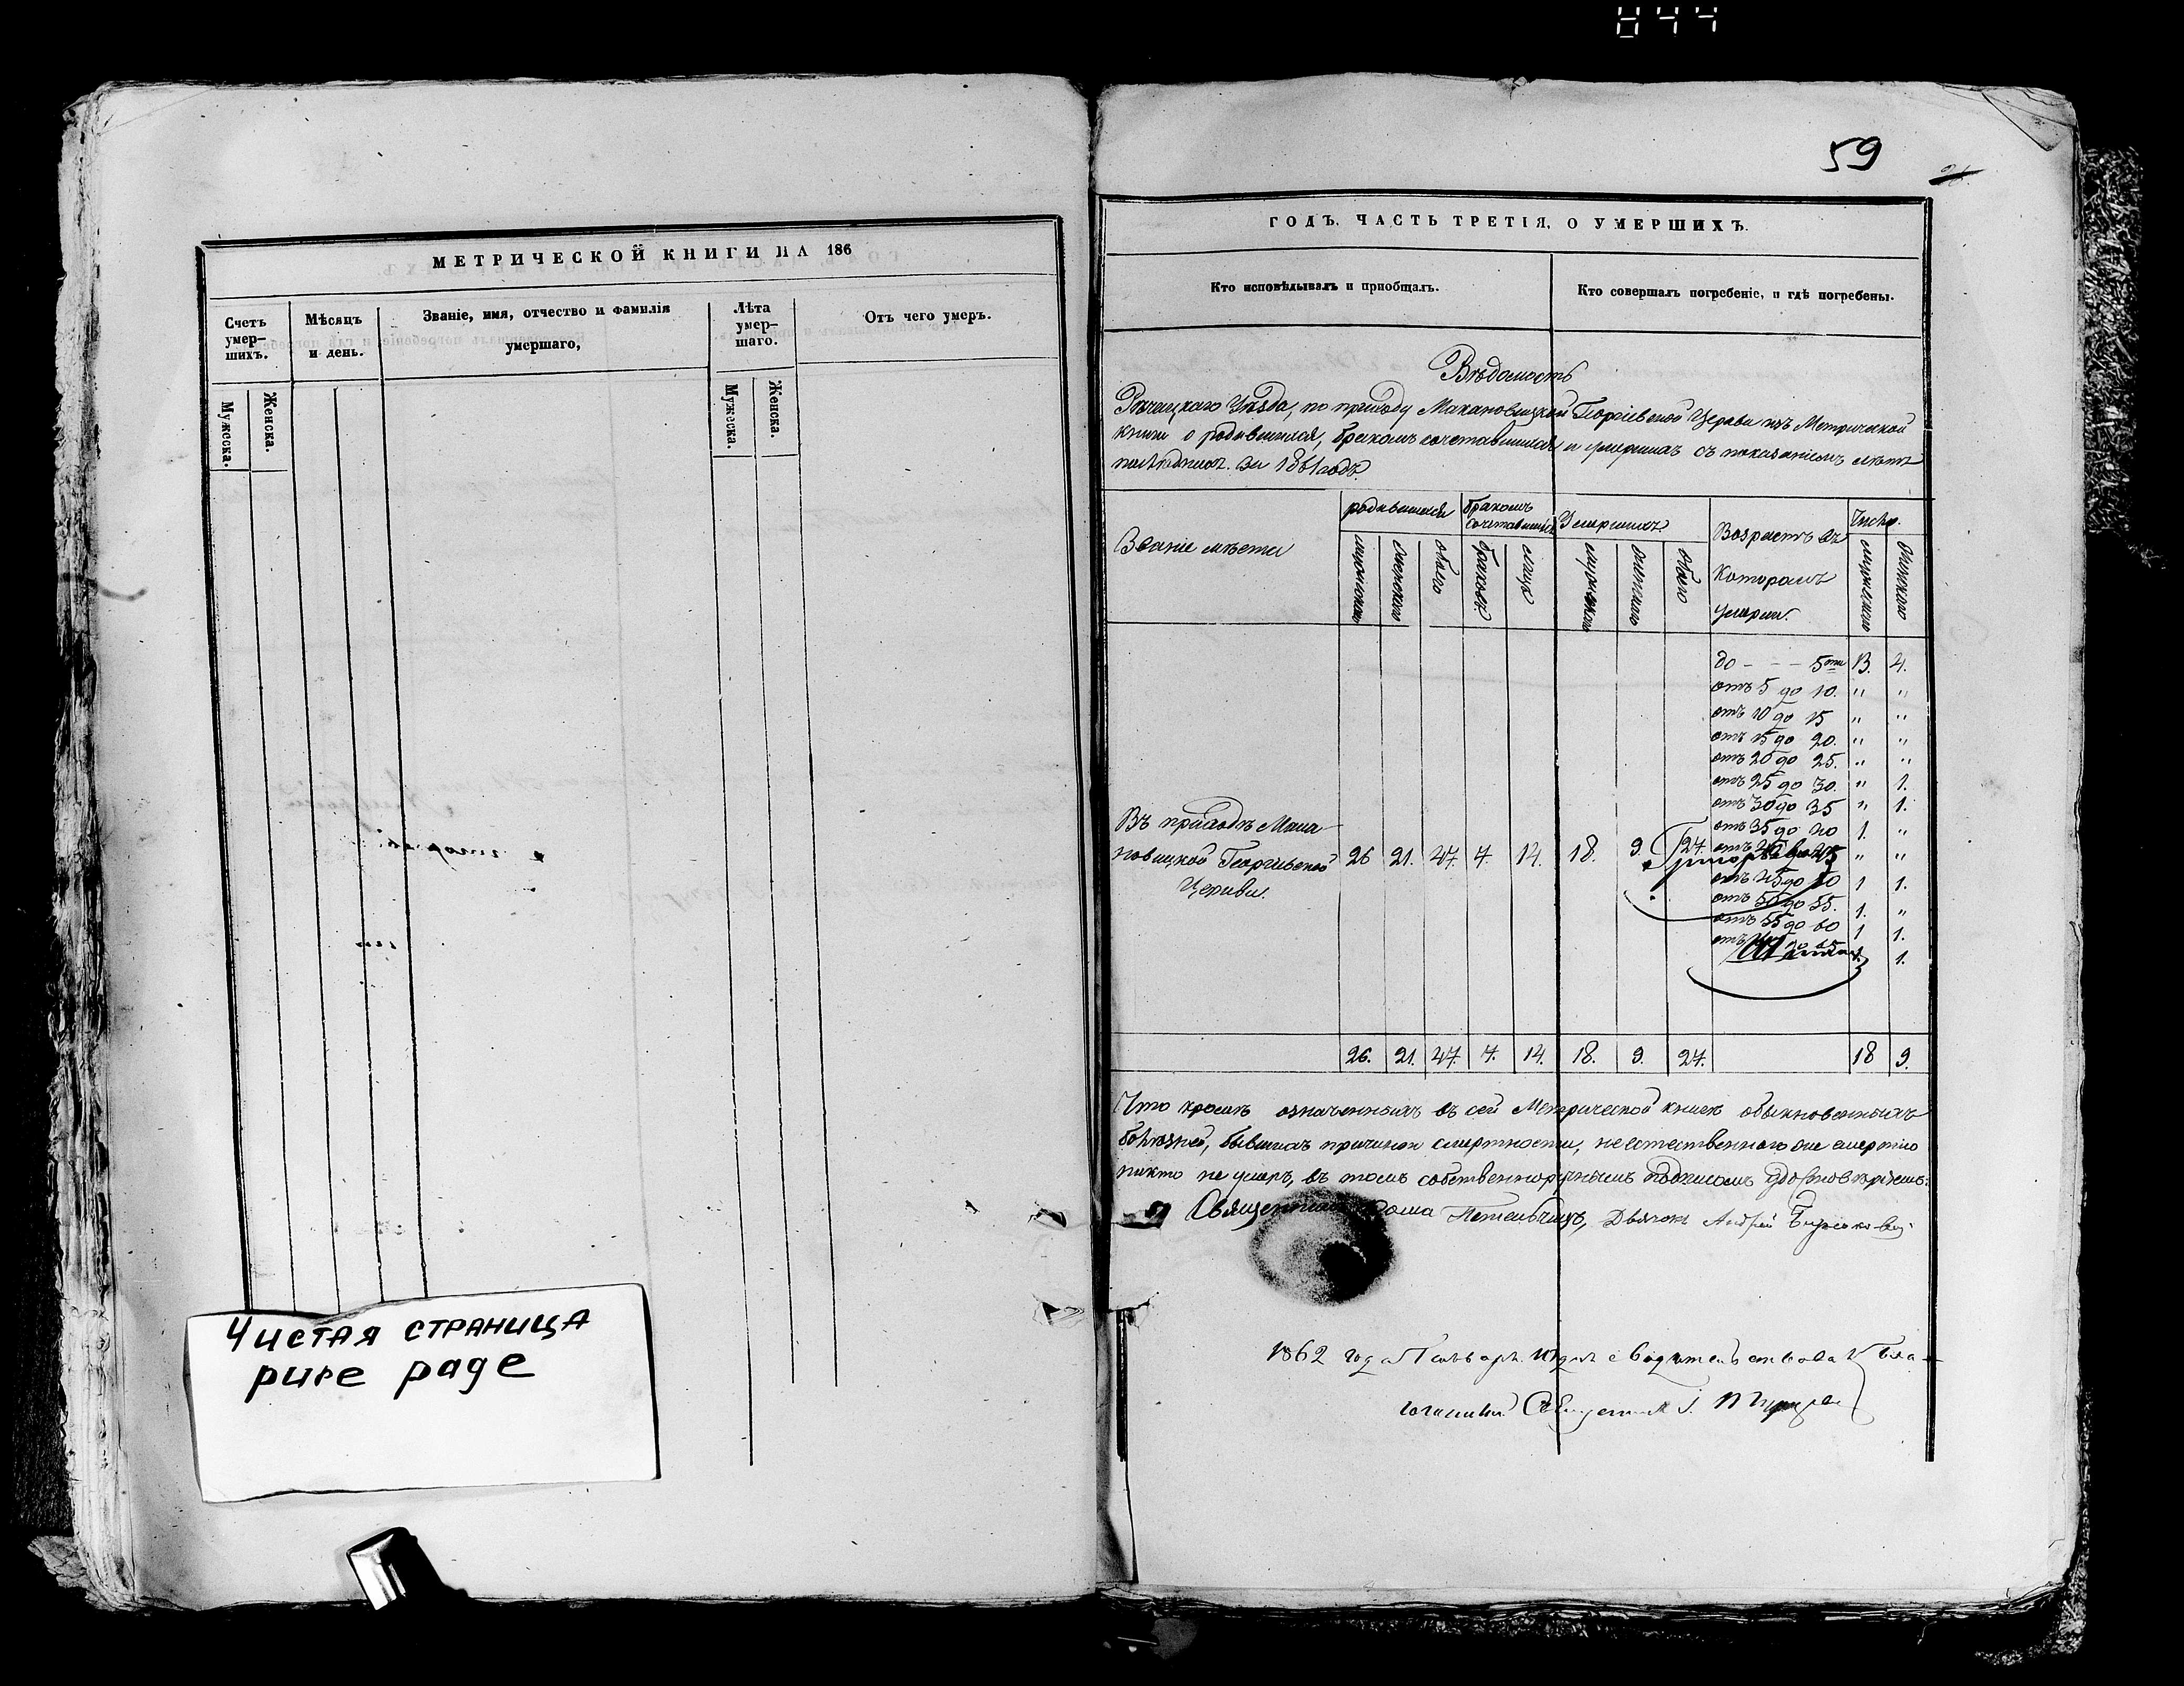 844
МЕТРИЧЕСКОЙ КНИГИ НА 186
Счетъ умер-шихъ.
Мѣсяцъ и день.
Званіе, имя, отчество и фамилія умершаго,
Лѣта умер-шаго.
Отъ чего умеръ.
Мужеска.
Женска.
Мужеска.
Женска.
Чистая страница
pure page
59
ГОДЪ. ЧАСТЬ ТРЕТІЯ, О УМЕРШИХЪ.
Кто исповѣдывалъ и пріобщалъ.
Кто совершалъ погребеніе, и гдѣ погребены.
Вѣдомость
Рѣчицкаго Уѣзда, по приходу Макановицкой Георгіевской Церкви изъ Метрической
книги о родившихся, бракомъ сочетавшихся и умершихъ съ показаніемъ лѣтъ
послѣднихъ. за 1861 годъ.
Званіе мѣста
родившихся
бракомъ сочетавшихся
Умершихъ
Возрастъ въ которомъ умерли.
Число.
мужескаго
женскаго
обоего
браковъ
лицъ
мужескаго
женскаго
обоего
мужескаго
женскаго
до - - - 5ти 13. 4.
отъ 5 до 10. " "
отъ 10 до 15 " "
отъ 15 до 20. " "
отъ 20 до 25. " "
отъ 25 до 30. " 1.
отъ 30 до 35 " 1.
отъ 35 до 40 1. "
Въ приходѣ Мака-
новицкой Георгіевской 26 21. 47. 7. 14. 18. 9. 27. отъ 40 до 45 " "
Церкви.
отъ 45 до 50 1 1.
отъ 50 до 55. 1. "
отъ 55 до 60 1 1.
до 65 1. 1.
26. 21. 47. 7. 14. 18. 9. 27. 18 9.
Что кромѣ означенныхъ въ сей Метрической книгѣ обыкновенныхъ
болѣзней, бывшихъ причиною смертности, неестественною же смертію
никто не умеръ, въ томъ собственноручнымъ подписомъ удостовѣряемъ:
Священникъ Ѳома Дьячокъ Андрей
1862 года Генваря дня свидѣтельствовалъ Бла-
гочинный Священникъ І.